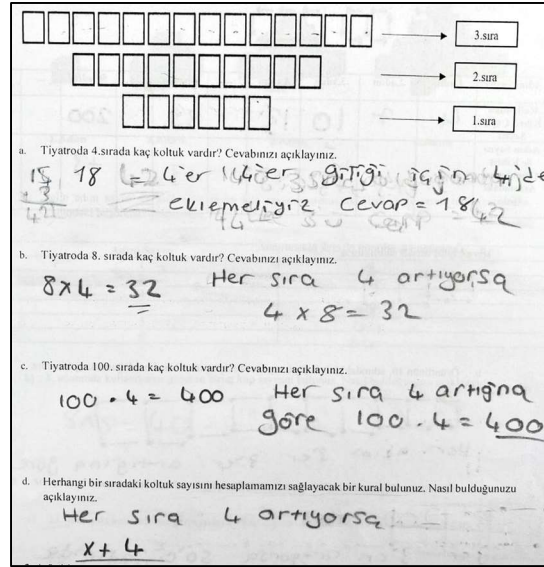 3.sıra
2.sıra
1.sıra
a. Tiyatroda 4.sırada kaç koltuk vardır? Cevabınızı açıklayınız.
18 = 4'er 4'er gitiği için 4'de
eklemeliyiz Cevap = 18
b. Tiyatroda 8. sırada kaç koltuk vardır? Cevabınızı açıklayınız.
8x4 = 32 Her sıra 4 artıyorsa
4 x 8 = 32
c. Tiyatroda 100. sırada kaç koltuk vardır? Cevabınızı açıklayınız.
100 . 4 = 400 Her sıra 4 artığına
göre 100 . 4 = 400
d. Herhangi bir sıradaki koltuk sayısını hesaplamamızı sağlayacak bir kural bulunuz. Nasıl bulduğunuzu
açıklayınız.
Her sıra 4 artıyorsa
x + 4